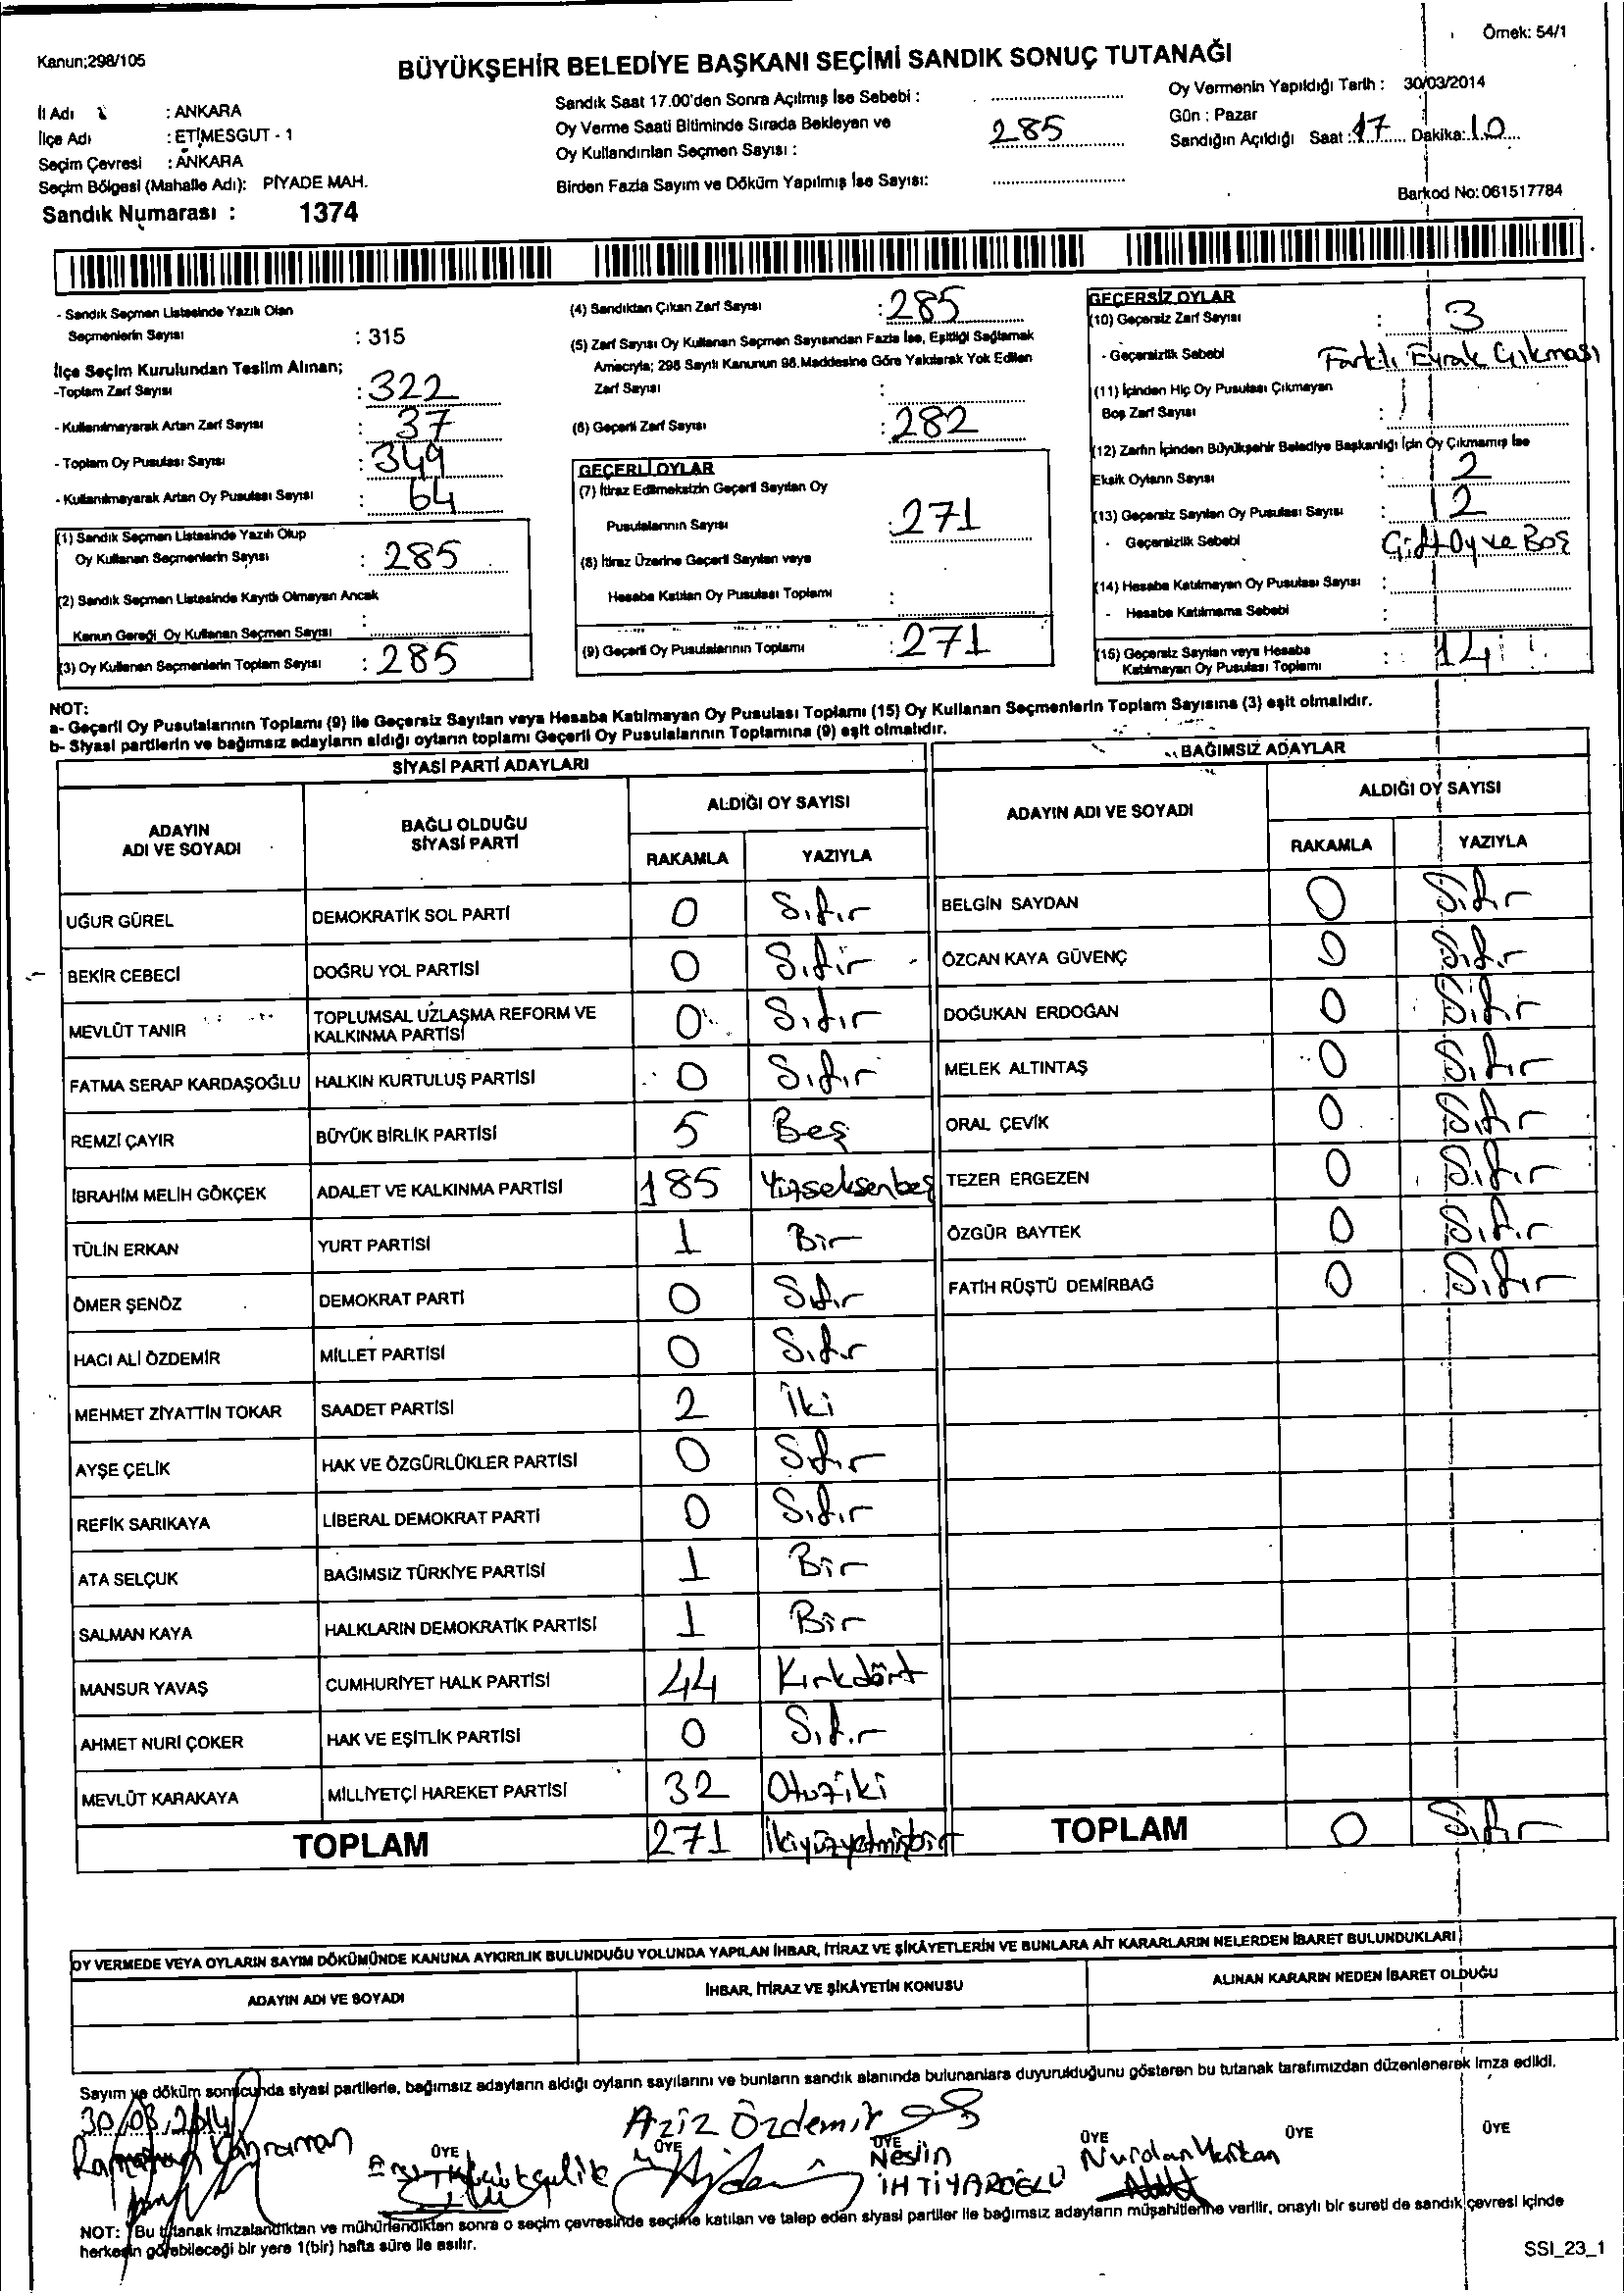 Örnek: 54/1
Kanun;298/105
BÜYÜKŞEHİR BELEDİYE BAŞKANI SEÇİMİ SANDIK SONUÇ TUTANAĞI
İl Adı : ANKARA
İlçe Adı : ETİMESGUT - 1
Seçim Çevresi : ANKARA
Seçim Bölgesi (Mahalle Adı): PİYADE MAH.
Sandık Numarası : 1374
Sandık Saat 17.00'den Sonra Açılmış İse Sebebi : ..........
Oy Verme Saati Bitiminde Sırada Bekleyen ve
Oy Kullandırılan Seçmen Sayısı : 285
Birden Fazla Sayım ve Döküm Yapılmış İse Sayısı: ..........
Oy Vermenin Yapıldığı Tarih : 30/03/2014
Gün : Pazar
Sandığın Açıldığı Saat : 17 Dakika: 10
Barkod No: 061517784
- Sandık Seçmen Listesinde Yazılı Olan
Seçmenlerin Sayısı : 315
İlçe Seçim Kurulundan Teslim Alınan;
-Toplam Zarf Sayısı : 322
- Kullanılmayarak Artan Zarf Sayısı : 37
- Toplam Oy Pusulası Sayısı : 349
- Kullanılmayarak Artan Oy Pusulası Sayısı : 64
(1) Sandık Seçmen Listesinde Yazılı Olup
Oy Kullanan Seçmenlerin Sayısı : 285
(2) Sandık Seçmen Listesinde Kayıtlı Olmayan Ancak
Kanun Gereği Oy Kullanan Seçmen Sayısı :
(3) Oy Kullanan Seçmenlerin Toplam Sayısı : 285
(4) Sandıktan Çıkan Zarf Sayısı : 285
(5) Zarf Sayısı Oy Kullanan Seçmen Sayısından Fazla İse, Eşitliği Sağlamak
Amacıyla; 298 Sayılı Kanunun 98.Maddesine Göre Yakılarak Yok Edilen
Zarf Sayısı :
(6) Geçerli Zarf Sayısı : 282
GEÇERLİ OYLAR
(7) İtiraz Edilmeksizin Geçerli Sayılan Oy
Pusulalarının Sayısı : 271
(8) İtiraz Üzerine Geçerli Sayılan veya
Hesaba Katılan Oy Pusulası Toplamı :
(9) Geçerli Oy Pusulalarının Toplamı : 271
GEÇERSİZ OYLAR
(10) Geçersiz Zarf Sayısı : 3
- Geçersizlik Sebebi Farklı Evrak Çıkması
(11) İçinden Hiç Oy Pusulası Çıkmayan
Boş Zarf Sayısı :
(12) Zarfın İçinden Büyükşehir Belediye Başkanlığı İçin Oy Çıkmamış İse
Eksik Oyların Sayısı : 2
(13) Geçersiz Sayılan Oy Pusulası Sayısı : 12
- Geçersizlik Sebebi Çift Oy ve Boş
(14) Hesaba Katılmayan Oy Pusulası Sayısı :
- Hesaba Katılmama Sebebi :
(15) Geçersiz Sayılan veya Hesaba
Katılmayan Oy Pusulası Toplamı : 14
NOT:
a- Geçerli Oy Pusulalarının Toplamı (9) ile Geçersiz Sayılan veya Hesaba Katılmayan Oy Pusulası Toplamı (15) Oy Kullanan Seçmenlerin Toplam Sayısına (3) eşit olmalıdır.
b- Siyasi partilerin ve bağımsız adayların aldığı oyların toplamı Geçerli Oy Pusulalarının Toplamına (9) eşit olmalıdır.
SİYASİ PARTİ ADAYLARI
ADAYIN ADI VE SOYADI BAĞLI OLDUĞU SİYASİ PARTİ ALDIĞI OY SAYISI RAKAMLA YAZIYLA
UĞUR GÜREL DEMOKRATİK SOL PARTİ 0 Sıfır
BEKİR CEBECİ DOĞRU YOL PARTİSİ 0 Sıfır
MEVLÜT TANIR TOPLUMSAL UZLAŞMA REFORM VE KALKINMA PARTİSİ 0 Sıfır
FATMA SERAP KARDAŞOĞLU HALKIN KURTULUŞ PARTİSİ 0 Sıfır
REMZİ ÇAYIR BÜYÜK BİRLİK PARTİSİ 5 Beş
İBRAHİM MELİH GÖKÇEK ADALET VE KALKINMA PARTİSİ 185 Yüzseksenbeş
TÜLİN ERKAN YURT PARTİSİ 1 Bir
ÖMER ŞENÖZ DEMOKRAT PARTİ 0 Sıfır
HACI ALİ ÖZDEMİR MİLLET PARTİSİ 0 Sıfır
MEHMET ZİYATTİN TOKAR SAADET PARTİSİ 2 İki
AYŞE ÇELİK HAK VE ÖZGÜRLÜKLER PARTİSİ 0 Sıfır
REFİK SARIKAYA LİBERAL DEMOKRAT PARTİ 0 Sıfır
ATA SELÇUK BAĞIMSIZ TÜRKİYE PARTİSİ 1 Bir
SALMAN KAYA HALKLARIN DEMOKRATİK PARTİSİ 1 Bir
MANSUR YAVAŞ CUMHURİYET HALK PARTİSİ 44 Kırkdört
AHMET NURİ ÇOKER HAK VE EŞİTLİK PARTİSİ 0 Sıfır
MEVLÜT KARAKAYA MİLLİYETÇİ HAREKET PARTİSİ 32 Otuziki
TOPLAM 271 İkiyüzyetmişbir
BAĞIMSIZ ADAYLAR
ADAYIN ADI VE SOYADI ALDIĞI OY SAYISI RAKAMLA YAZIYLA
BELGİN SAYDAN 0 Sıfır
ÖZCAN KAYA GÜVENÇ 0 Sıfır
DOĞUKAN ERDOĞAN 0 Sıfır
MELEK ALTINTAŞ 0 Sıfır
ORAL ÇEVİK 0 Sıfır
TEZER ERGEZEN 0 Sıfır
ÖZGÜR BAYTEK 0 Sıfır
FATİH RÜŞTÜ DEMİRBAĞ 0 Sıfır
TOPLAM 0 Sıfır
OY VERMEDE VEYA OYLARIN SAYIM DÖKÜMÜNDE KANUNA AYKIRILIK BULUNDUĞU YOLUNDA YAPILAN İHBAR, İTİRAZ VE ŞİKÂYETLERİN VE BUNLARA AİT KARARLARIN NELERDEN İBARET BULUNDUKLARI
ADAYIN ADI VE SOYADI İHBAR, İTİRAZ VE ŞİKÂYETİN KONUSU ALINAN KARARIN NEDEN İBARET OLDUĞU
Sayım ve döküm sonucunda siyasi partilerle, bağımsız adayların aldığı oyların sayılarını ve bunların sandık alanında bulunanlara duyurulduğunu gösteren bu tutanak tarafımızdan düzenlenerek imza edildi.
30/03/2014 Aziz Özdemir
Ramazan Kahraman ÜYE ÜYE ÜYE ÜYE ÜYE ÜYE
Neslin İHTİYAROĞLU Nurdan
NOT: Bu tutanak imzalandıktan ve mühürlendikten sonra o seçim çevresinde seçime katılan ve talep eden siyasi partiler ile bağımsız adayların müşahitlerine verilir, onaylı bir sureti de sandık çevresi içinde
herkesin görebileceği bir yere 1(bir) hafta süre ile asılır.
SSI_23_1